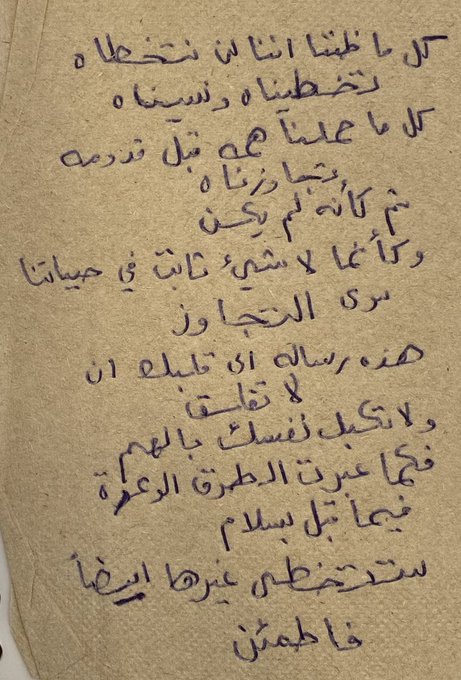 كل ما ظننا اننا لن نتخطاه
تخطيناه ونسيناه
كل ما حملنا همه قبل قدومه
تجاوزناه
ثم كأنه لم يكن
وكأنما لا شيء ثابت في حياتنا
سوى التجاوز
هذه رساله الى قلبك ان
لا تقلق
ولا تكبل نفسك بالهم
فكما عبرت الطرق الوعرة
فيما قبل بسلام
ستتخطى غيرها ايضاً
فاطمئن